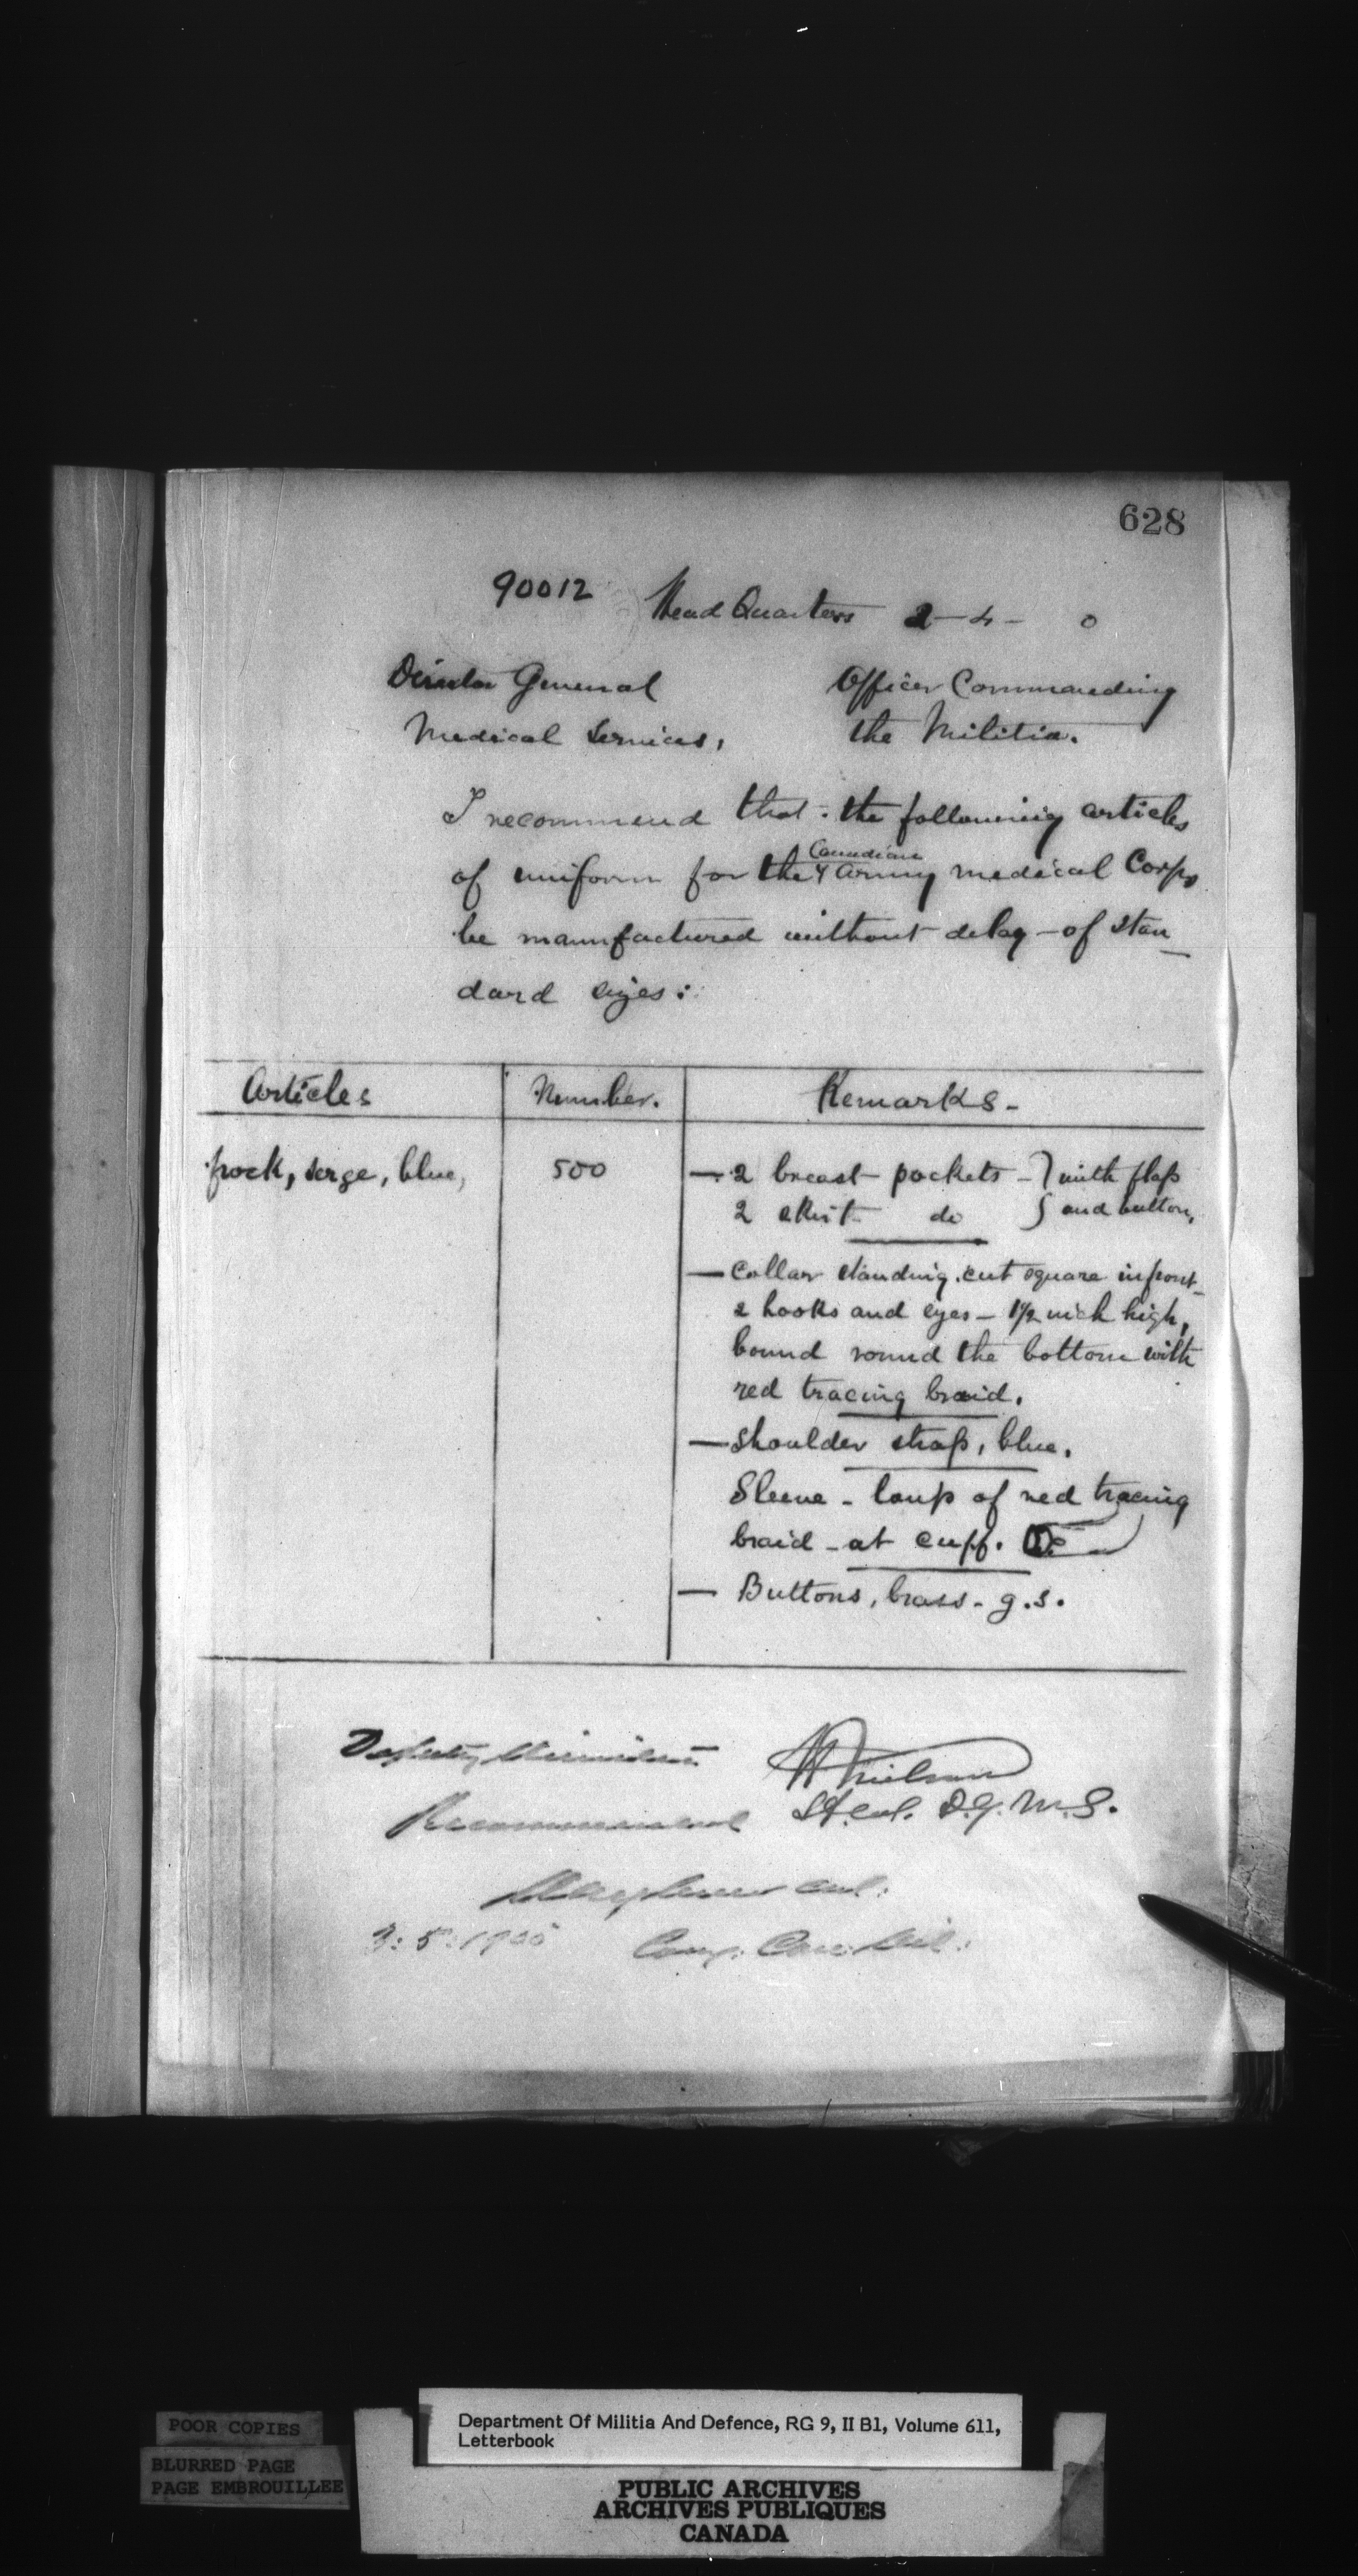 628
90012 Head Quarters 2-4- 0
Director General Officer Commanding
Medical Services, the Militia.
I recommend that the following articles
of uniform for the Canadian Army medical Corps
be manufactured without delay - of stan
dard sizes:
Articles Number. Remarks-
frock, serge, blue, 500 — 2 breast pockets - } with flap
2 skirt do } and button,
— Collar standing cut square in front
2 hooks and eyes - 1 1/2 inch high,
bound round the bottom with
red tracing braid.
— Shoulder strap, blue.
Sleeve - loup of red tracing
braid - at cuff.
— Buttons, brass - g.s.
Deputy Minister Neilson
Recommended Lt. Col. D.G.M.S.
Col.
3: 5: 1900
POOR COPIES
BLURRED PAGE
PAGE EMBROUILLEE
Department Of Militia And Defence, RG 9, II B1, Volume 611,
Letterbook
PUBLIC ARCHIVES
ARCHIVES PUBLIQUES
CANADA